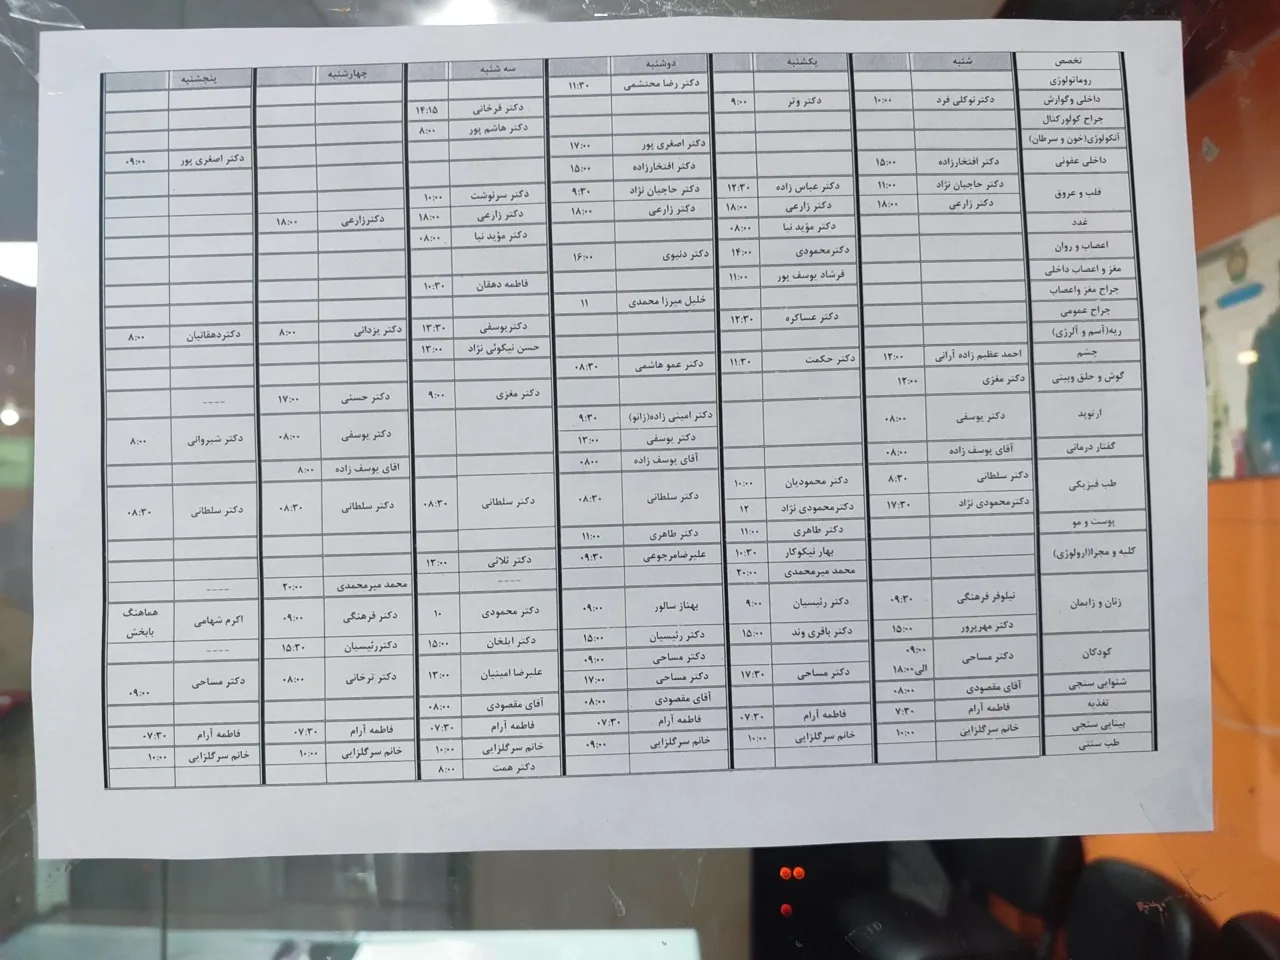 تخصص شنبه یکشنبه دوشنبه سه شنبه چهارشنبه پنجشنبه
روماتولوژی دکتر رضا محتشمی ۱۱:۳۰
داخلی وگوارش دکترتوکلی فرد ۱۰:۰۰ دکتر وتر ۹:۰۰ دکتر فرخانی ۱۴:۱۵
جراح کولورکتال دکتر هاشم پور ۸:۰۰
آنکولوژی(خون و سرطان) دکتر اصغری پور ۱۷:۰۰ دکتر اصغری پور ۰۹:۰۰
داخلی عفونی دکتر افتخارزاده ۱۵:۰۰ دکتر افتخارزاده ۱۵:۰۰
قلب و عروق دکتر حاجیان نژاد ۱۱:۰۰ دکتر عباس زاده ۱۲:۳۰ دکتر حاجیان نژاد ۹:۳۰ دکتر سرنوشت ۱۰:۰۰
دکتر زارعی ۱۸:۰۰ دکتر زارعی ۱۸:۰۰ دکتر زارعی ۱۸:۰۰ دکتر زارعی ۱۸:۰۰ دکترزارعی ۱۸:۰۰
غدد دکتر مؤید نیا ۰۸:۰۰ دکتر مؤید نیا ۰۸:۰۰
اعصاب و روان دکترمحمودی ۱۴:۰۰ دکتر دنیوی ۱۶:۰۰
مغز و اعصاب داخلی فرشاد یوسف پور ۱۱:۰۰ فاطمه دهقان ۱۰:۳۰
جراح مغز واعصاب خلیل میرزا محمدی ۱۱
جراح عمومی دکتر عساکره ۱۲:۳۰ دکتریوسفی ۱۳:۳۰ دکتر یزدانی ۸:۰۰ دکتردهقانیان ۸:۰۰
ریه(آسم و آلرژی) حسن نیکوئی نژاد ۱۳:۰۰
چشم احمد عظیم زاده آرانی ۱۲:۰۰ دکتر حکمت ۱۱:۳۰ دکتر عمو هاشمی ۰۸:۳۰
گوش و حلق وبینی دکتر مغزی ۱۲:۰۰ دکتر مغزی ۹:۰۰ دکتر حسنی ۱۷:۰۰ ----
ارتوپد دکتر یوسفی ۰۸:۰۰ دکتر امینی زاده(زانو) ۹:۳۰ دکتر یوسفی ۰۸:۰۰ دکتر شیروانی ۸:۰۰
دکتر یوسفی ۱۳:۰۰
گفتار درمانی آقای یوسف زاده ۰۸:۰۰ آقای یوسف زاده ۰۸۰۰ اقای یوسف زاده ۸:۰۰
طب فیزیکی دکتر سلطانی ۸:۳۰ دکتر محمودیان ۱۰:۰۰ دکتر سلطانی ۰۸:۳۰ دکتر سلطانی ۰۸:۳۰ دکتر سلطانی ۰۸:۳۰ دکتر سلطانی ۰۸:۳۰
دکترمحمودی نژاد ۱۷:۳۰ دکترمحمودی نژاد ۱۲
پوست و مو دکتر طاهری ۱۱:۰۰ دکتر طاهری ۱۱:۰۰
کلیه و مجرا(ارولوژی) بهار نیکوکار ۱۰:۳۰ علیرضامرجوعی ۰۹:۳۰ دکتر ثلاثی ۱۳:۰۰
محمد میرمحمدی ۲۰:۰۰ ---- محمد میرمحمدی ۲۰:۰۰ ----
زنان و زایمان نیلوفر فرهنگی ۰۹:۳۰ دکتر رئیسیان ۹:۰۰ بهناز سالور ۰۹:۰۰ دکتر محمودی ۱۰ دکتر فرهنگی ۰۹:۰۰ اکرم شهامی هماهنگ بابخش
دکتر مهرپرور ۱۵:۰۰ دکتر باقری وند ۱۵:۰۰ دکتر رئیسیان ۱۵:۰۰ دکتر ایلخان ۱۵:۰۰ دکتررئیسیان ۱۵:۳۰ ----
کودکان دکتر مساحی ۰۹:۰۰ الی۱۸:۰۰ دکتر مساحی ۱۷:۳۰ دکتر مساحی ۰۹:۰۰ علیرضا امینیان ۱۳:۰۰ دکتر ترخانی ۰۸:۰۰ دکتر مساحی ۰۹:۰۰
دکتر مساحی ۱۷:۰۰
شنوایی سنجی آقای مقصودی ۰۸:۰۰ آقای مقصودی ۰۸:۰۰ آقای مقصودی ۰۸:۰۰
تغذیه فاطمه آرام ۷:۳۰ فاطمه آرام ۰۷:۳۰ فاطمه آرام ۰۷:۳۰ فاطمه آرام ۰۷:۳۰ فاطمه آرام ۰۷:۳۰ فاطمه آرام ۰۷:۳۰
بینایی سنجی خانم سرگلزایی ۱۰:۰۰ خانم سرگلزایی ۱۰:۰۰ خانم سرگلزایی ۰۹:۰۰ خانم سرگلزایی ۱۰:۰۰ خانم سرگلزایی ۱۰:۰۰ خانم سرگلزایی ۱۰:۰۰
طب سنتی دکتر همت ۸:۰۰